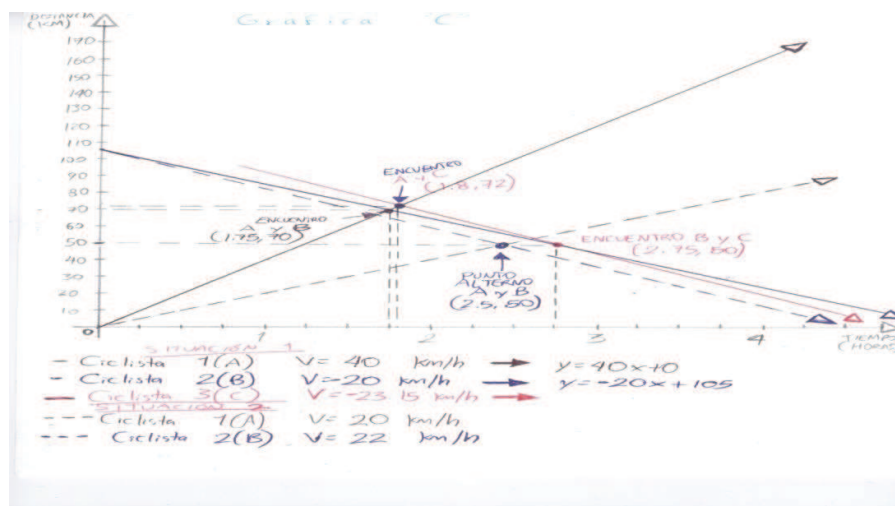 DISTANCIA
(KM)
Grafica "C"
170
160
150
140
130
120
110
100
90
80
70
60
50
40
30
20
10
0
1
2
3
4
ENCUENTRO
A y C
(1.8,72)
ENCUENTRO
A y B
(1.75,70)
ENCUENTRO B y C
(2.75,50)
PUNTO
ALTERNO
A y B
(2.5,50)
TIEMPO
(HORAS)
SITUACION 1
- Ciclista 1(A) V= 40 km/h y=40x+0
- Ciclista 2(B) V=-20 km/h y=-20x+105
- Ciclista 3(C) V=-23.15 km/h
SITUACION 2
--- Ciclista 1(A) V= 20 km/h
--- Ciclista 2(B) V= 22 km/h